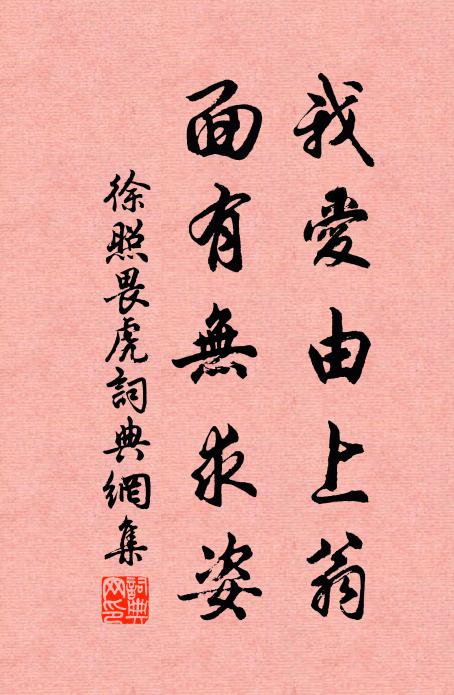 我愛由上翁
面有無求姿
徐照畏虎詞典網集
詞典网印